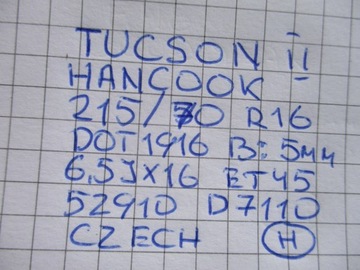 TUCSON II
HANCOOK
215/70 R16
DOT1916 B: 5мм
6,5J×16 ET45
52910 D7110
CZECH H